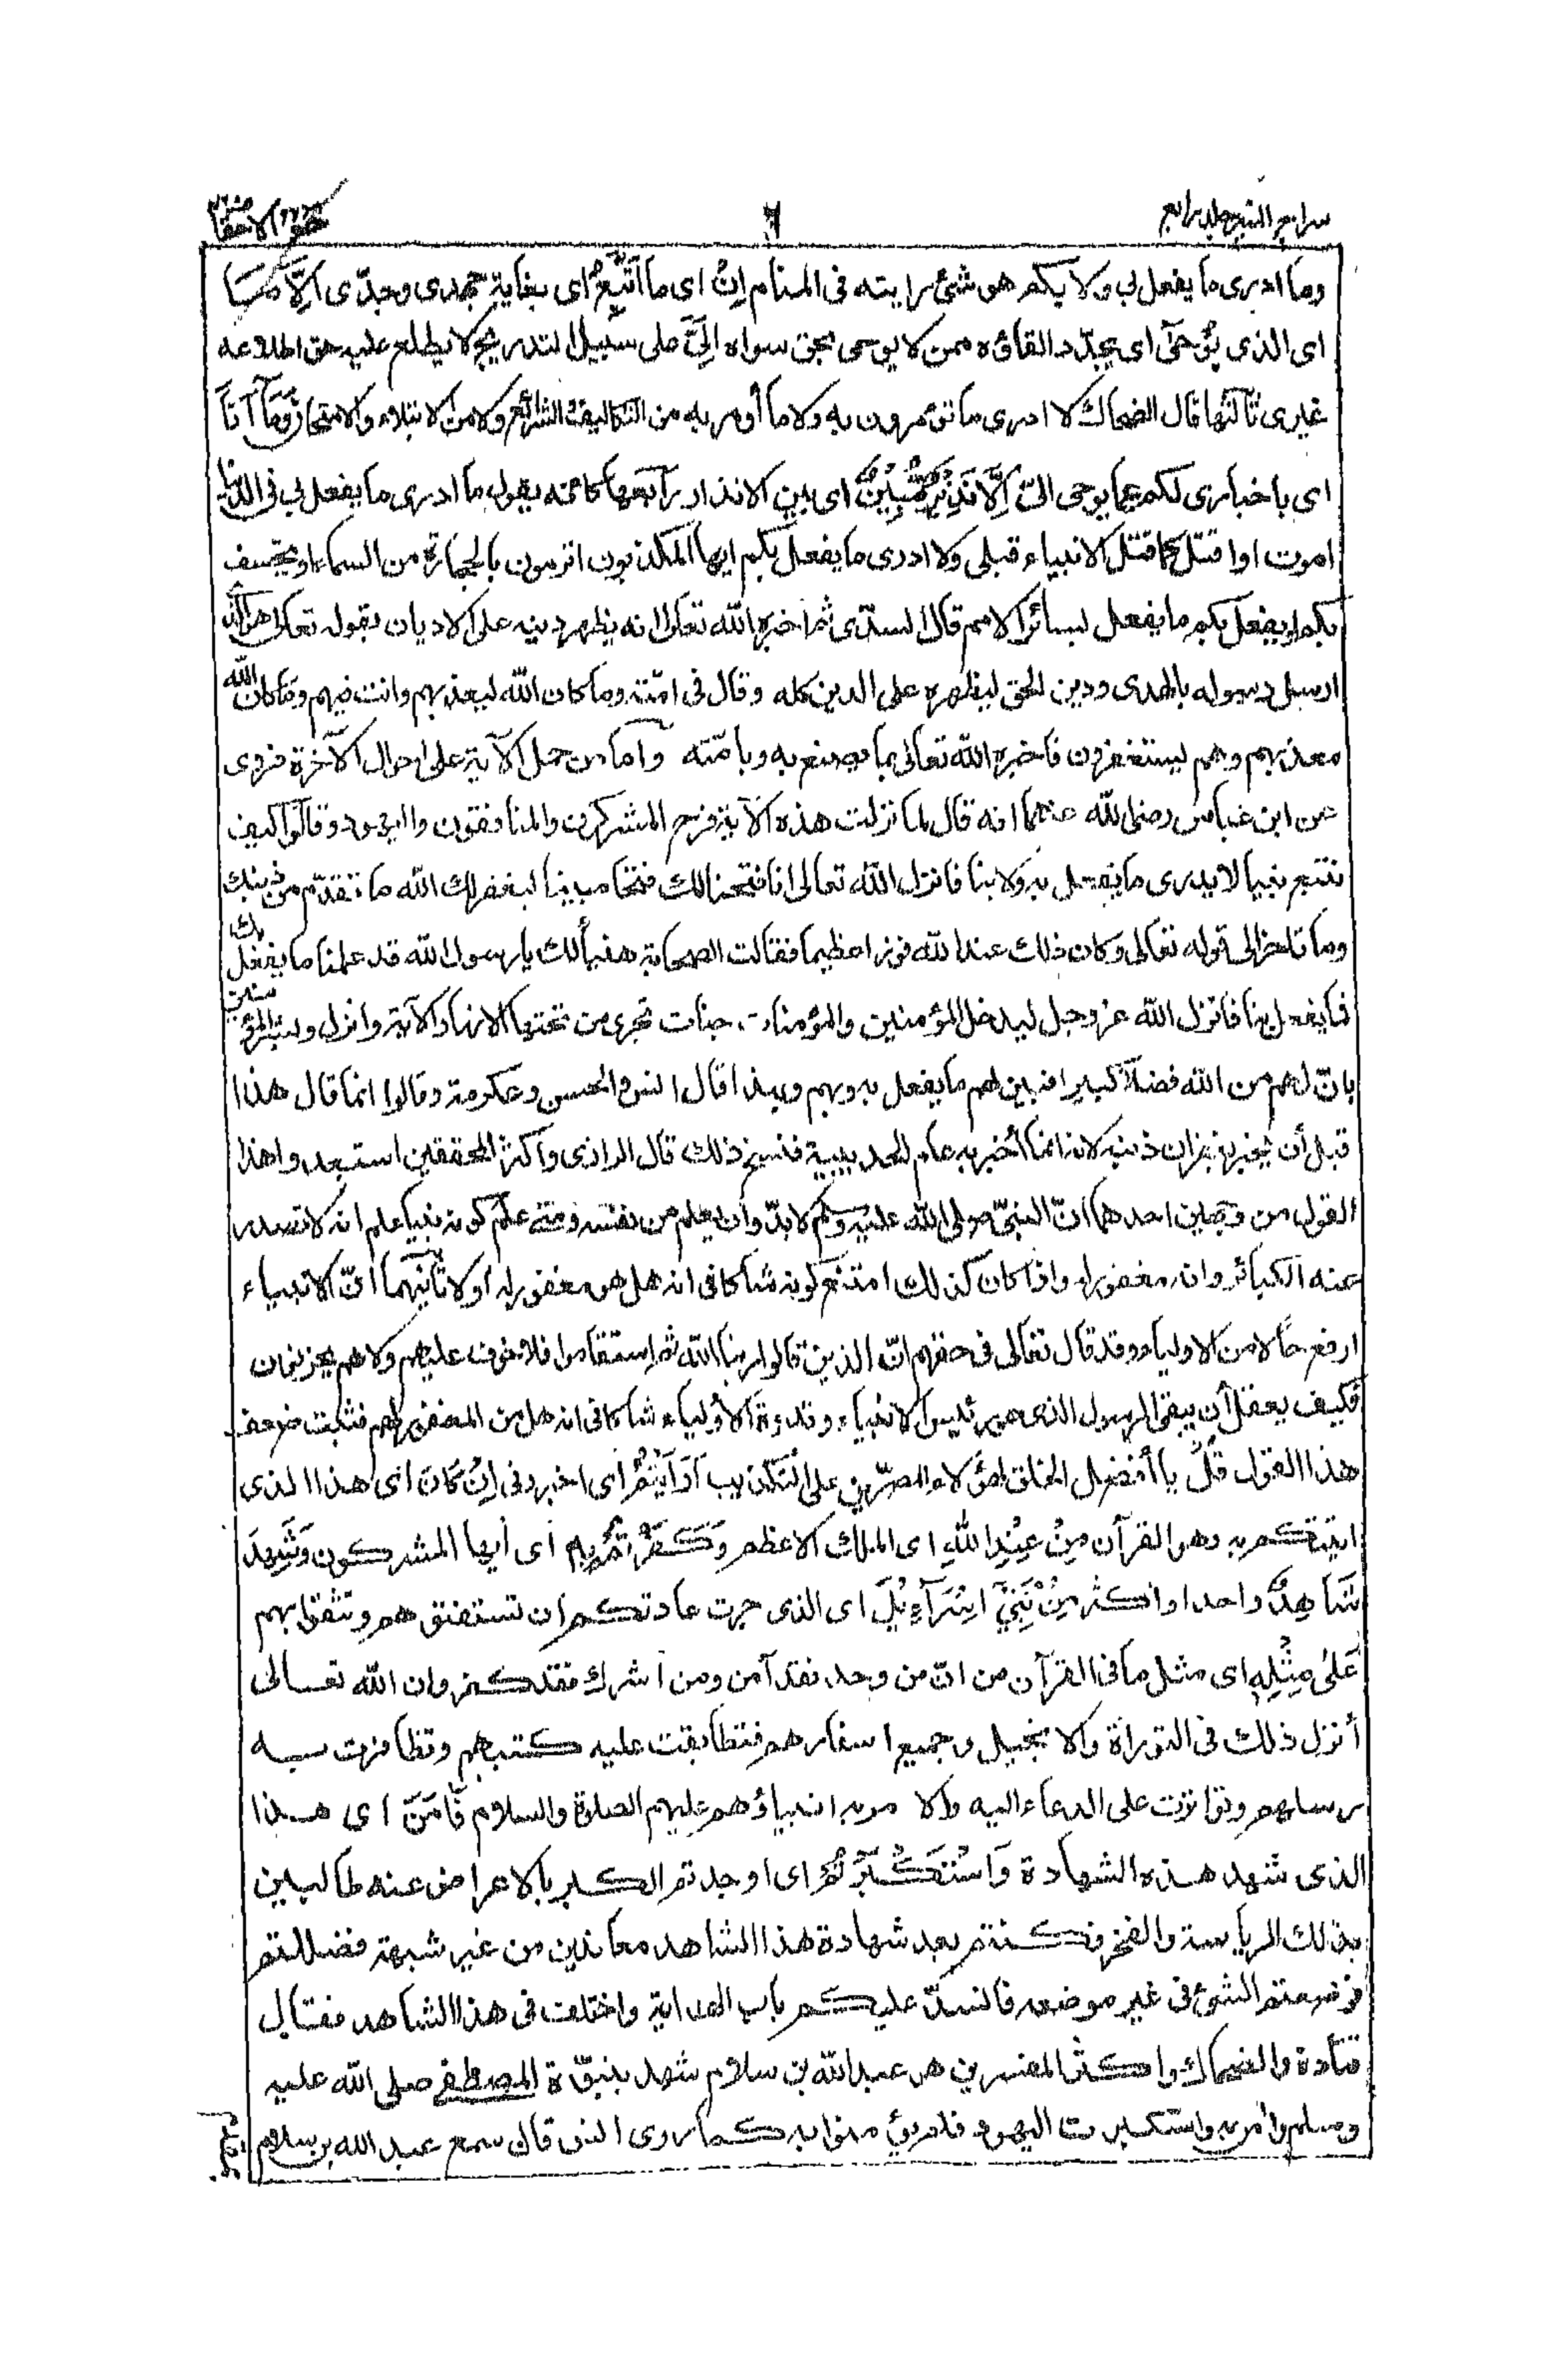 سراج المنير جلد رابع
٦
وما ادرى ما يفعل بى ولا بكم هو شئ رايته فى المنام اِنْ اى ما اَتَّبِعُ اى بغاية جهدى وجدّى اِلَّا مَا
اى الذى يُوْحٰى اى يجدّد القاؤه ممن لا يوحى بحق سواه اِلَىَّ على سبيل التدريج لا يطلع عليه حق اطلاعه
غيرى ثالثها قال الضحاك لا ادرى ما تؤمرون به ولا ما أومر به من التكاليف والشرائع ولا من الابتلاء والامتحان وَمَا اَنَا
اى باخبارى لكم عما يوحى الىّ اِلَّا نَذِيْرٌ مُّبِيْنٌ اى بين الانذار رابعها كانه يقول ما ادرى ما يفعل بى فى الدنيا
اموت او اقتل كما قتل الانبياء قبلى ولا ادرى ما يفعل بكم ايها المكذبون اترمون بالحجارة من السماء او يخسف
بكم او يفعل بكم ما يفعل بسائر الامم قال السدّى ثم اخبره الله تعالى انه يظهر دينه على الاديان بقوله تعالى هو الذى
ارسل رسوله بالهدى ودين الحق ليظهره على الدين كله وقال فى امّته وما كان الله ليعذبهم وانت فيهم وما كان الله
معذبهم وهم يستغفرون فاخبره الله تعالى بما يصنع به وبامّته واما من حمل الآية على احوال الآخرة فروى
عن ابن عباس رضى الله عنهما انه قال لما نزلت هذه الآية فرح المشركون والمنافقون واليهود وقالوا كيف
نتبع نبيا لا يدرى ما يفعل به ولا بنا فانزل الله تعالى انا فتحنا لك فتحا مبينا ليغفر لك الله ما تقدّم من ذنبك
وما تاخر الى قوله تعالى وكان ذلك عند الله فوزا عظيما فقالت الصحابة هنيأ لك يا رسول الله قد علمنا ما يفعل بك
فما يفعل بنا فانزل الله عز وجل ليدخل المؤمنين والمؤمنات جنات تجرى من تحتها الانهار الآية وانزل وبشر المؤمنين
بانّ لهم من الله فضلا كبيرا فبين لهم ما يفعل به وبهم وبهذا قال انس والحسن وعكرمة وقالوا انما قال هذا
قبل أن يخبر بغفران ذنبه لانه انما أخبر به عام الحديبية فنسخ ذلك قال الرازى واكثر المحققين استبعدوا هذا
القول من وجهين احدهما انّ النبىّ صلى الله عليه وسلم لا بدّ وان يعلم من نفسه ومتى علم كونه نبيا علم انه لا تصدر
عنه الكبائر وانه مغفور له واذا كان كذلك امتنع كونه شاكا فى انه هل هو مغفور له أو لا ثانيهما انّ الانبياء
ارفع حالا من الاولياء وقد قال تعالى فى حقهم انّ الذين قالوا ربنا الله ثم استقاموا فلا خوف عليهم ولا هم يحزنون
فكيف يعقل أن يبقى الرسول الذى هو رئيس الانبياء وقدوة الأولياء شاكا فى انه هل من المغفور لهم فثبت ضعف
هذا القول قُلْ يا أفضل الخلق لهؤلاء المصرّين على التكذيب اَرَاَيْتُمْ اى اخبرونى اِنْ كَانَ اى هذا الذى
اتيتكم به وهو القرآن مِنْ عِنْدِ اللهِ اى الملك الاعظم وَكَفَرْتُمْ بِهٖ اى أيها المشركون وَشَهِدَ
شَاهِدٌ واحد او اكثر مِنْ بَنِىْ اِسْرَآءِيْلَ اى الذى جرت عادتكم ان تستفتوهم وتثقوا بهم
عَلٰى مِثْلِهٖ اى مثل ما فى القرآن من انّ من وحد فقد آمن ومن اشرك فقد كفر وان الله تعالى
أنزل ذلك فى التوراة والانجيل وجميع اسفارهم فتطابقت عليه كتبهم وتظافرت به
رسلهم وتواترت على الدعاء اليه والامر به انبياؤهم عليهم الصلاة والسلام فَاٰمَنَ اى هذا
الذى شهد هذه الشهادة وَاسْتَكْبَرْتُمْ اى اوجدتم الكبر بالاعراض عنه طالبين
بذلك الرياسة والفخر فكنتم بعد شهادة هذا الشاهد معاندين من غير شبهة فضللتم
فوضعتم الشئ فى غير موضعه فانسدّ عليكم باب الهداية واختلف فى هذا الشاهد فقال
قتادة والضحاك واكثر المفسرين هو عبد الله بن سلام شهد بنبوّة المصطفى صلى الله عليه
وسلم وآمن به واستكبرت اليهود فلم يؤمنوا به كما روى انس قال سمع عبد الله بن سلام